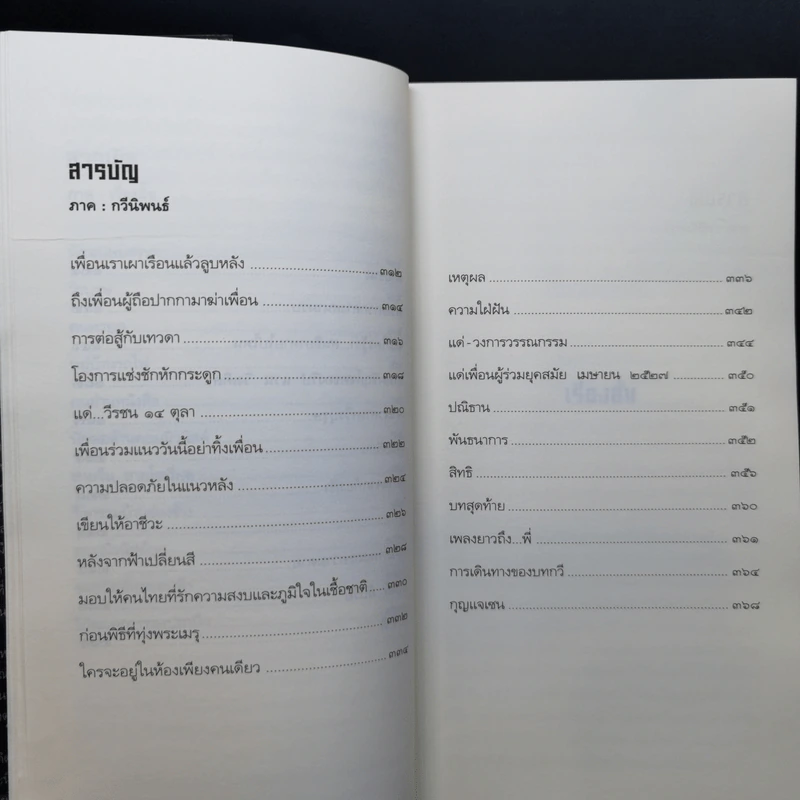 สารบัญ
ภาค : กวีนิพนธ์
เพื่อนเราเผาเรือนแล้วลูบหลัง ........ ๓๑๒
ถึงเพื่อนผู้ถือปากกามาฆ่าเพื่อน ........ ๓๑๔
การต่อสู้กับเทวดา ........ ๓๑๖
โองการแช่งชักหักกระดูก ........ ๓๑๘
แด่...วีรชน ๑๔ ตุลา ........ ๓๒๐
เพื่อนร่วมแนววันนี้อย่าทิ้งเพื่อน ........ ๓๒๒
ความปลอดภัยในแนวหลัง ........ ๓๒๔
เขียนให้อาชีวะ ........ ๓๒๖
หลังจากฟ้าเปลี่ยนสี ........ ๓๒๘
มอบให้คนไทยที่รักความสงบและภูมิใจในเชื้อชาติ ..... ๓๓๐
ก่อนพิธีที่ทุ่งพระเมรุ ........ ๓๓๒
ใครจะอยู่ในห้องเพียงคนเดียว ........ ๓๓๔
เหตุผล ........ ๓๓๖
ความใฝ่ฝัน ........ ๓๔๒
แด่ - วงการวรรณกรรม ........ ๓๔๔
แด่เพื่อนผู้ร่วมยุคสมัย เมษายน ๒๕๒๗ ........ ๓๕๐
ปณิธาน ........ ๓๕๑
พันธนาการ ........ ๓๕๒
สิทธิ ........ ๓๕๖
บทสุดท้าย ........ ๓๖๐
เพลงยาวถึง...พี่ ........ ๓๖๑
การเดินทางของบทกวี ........ ๓๖๔
กุญแจเซน ........ ๓๖๘